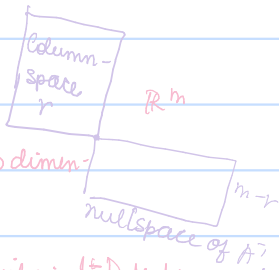 Column-
space
r
R^m
dimen-
m-r
nullspace of A^T